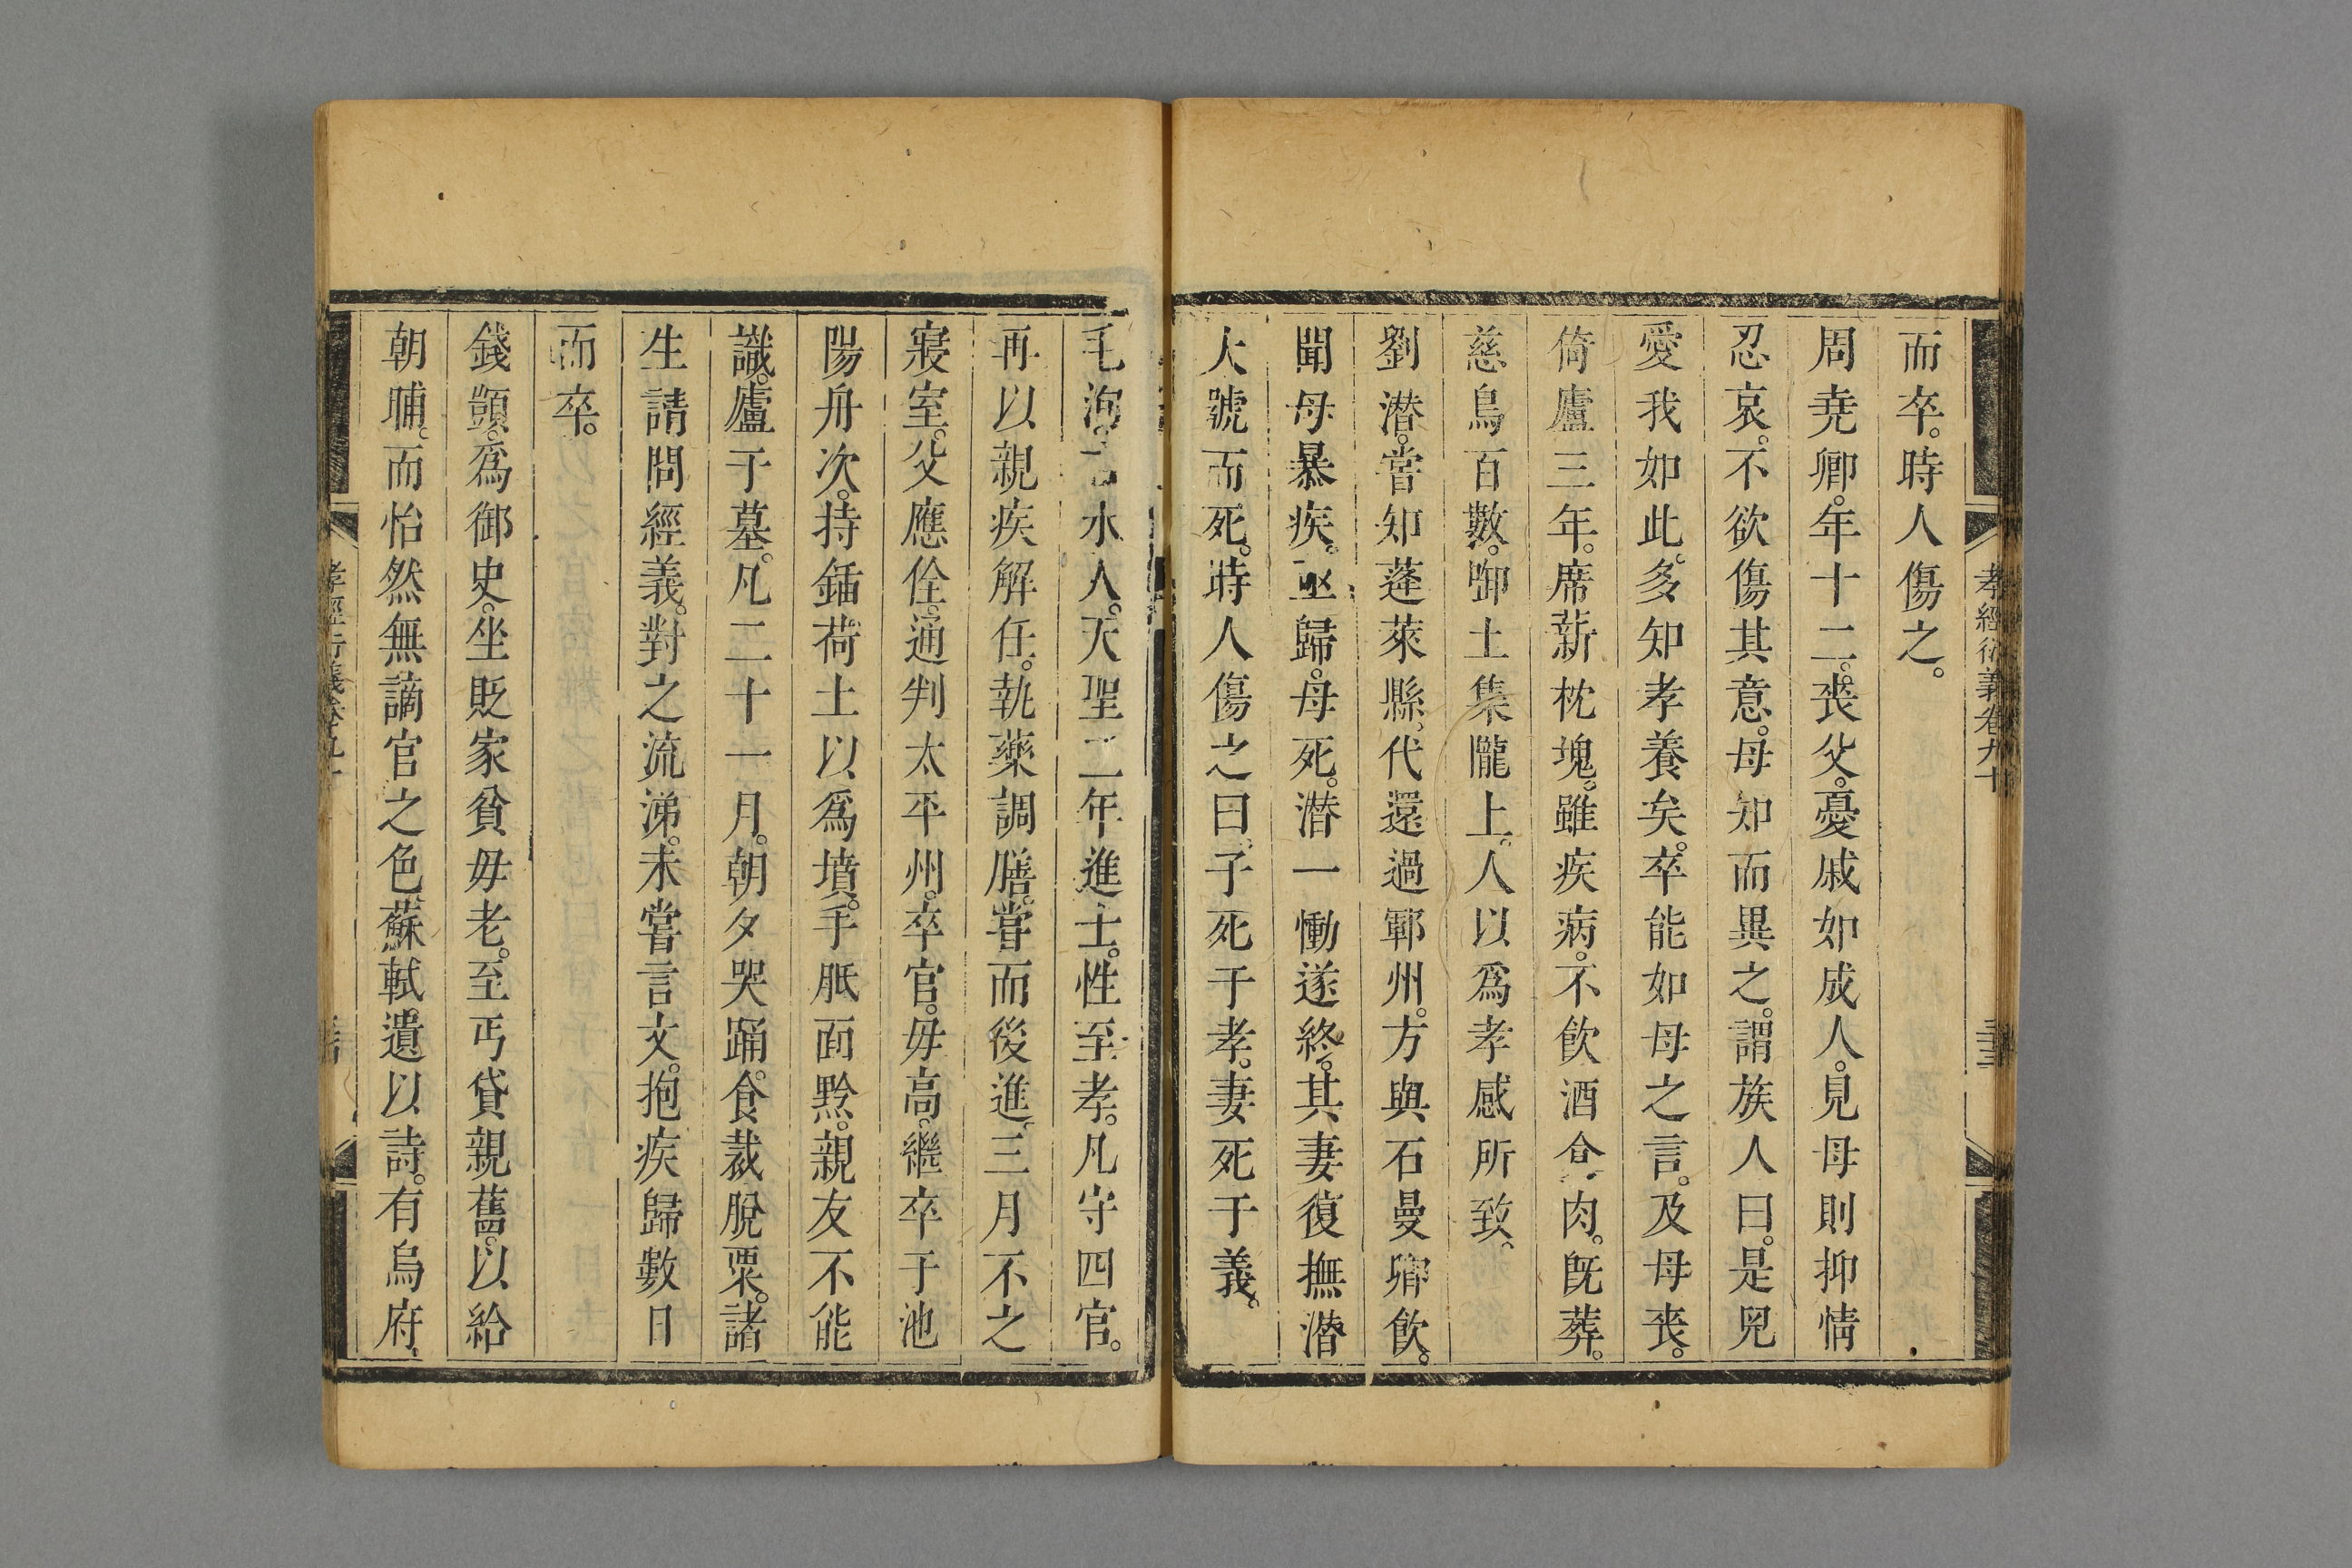 孝經衍義卷九十
三十三
而卒。時人傷之。
周堯卿。年十二。喪父。憂戚如成人。見母則抑情
忍哀。不欲傷其意。母知而異之。謂族人曰。是兒
愛我如此。多知孝養矣。卒能如母之言。及母喪。
倚廬三年。席薪枕塊。雖疾病。不飲酒食肉。旣葬。
慈烏百數。啣土集隴上。人以爲孝感所致。
劉潛。嘗知蓬萊縣。代還過鄆州。方與石曼卿飲。
聞母暴疾。亟歸。母死。潛一慟遂終。其妻復撫潛
大號而死。時人傷之曰。子死于孝。妻死于義。
毛洵。吉水人。天聖二年進士。性至孝。凡守四官。
再以親疾解任。執藥調膳。嘗而後進。三月不之
寢室。父應佺。通判太平州。卒官。毋高。繼卒于池
陽舟次。持鍤荷土以爲墳。手胝面黔。親友不能
識。廬于墓。凡二十一月。朝夕哭踊。食裁脫粟。諸
生請問經義。對之流涕。未嘗言文。抱疾歸數日
而卒。
錢顗。爲御史。坐貶家貧毋老。至丐貸親舊。以給
朝晡。而怡然無謫官之色。蘇軾。遺以詩。有烏府
孝經衍義卷九十